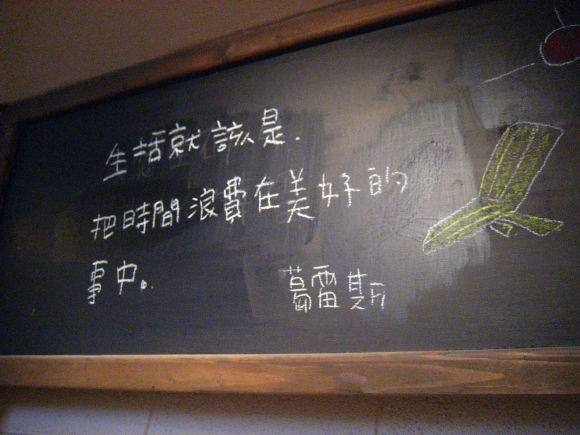 生活就該是.
把時間浪費在美好的
事中。
葛雷斯